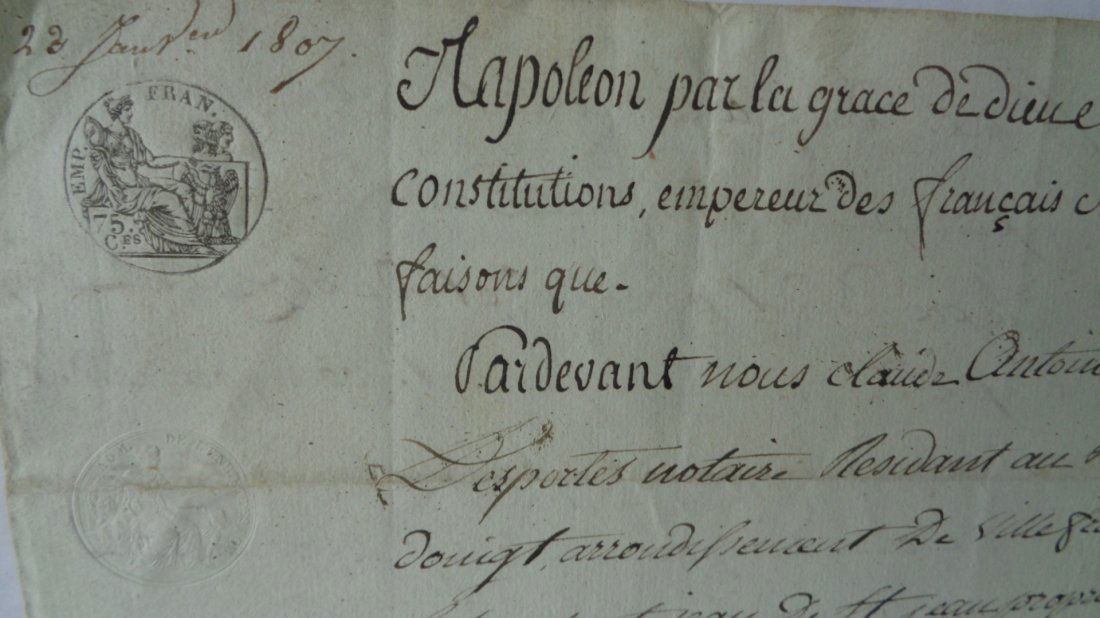 23 Janv.er 1807.
EMP. FRAN.
75.
C.ES
Napoleon par la grace de dieu e
constitutions, empereur des français
faisons que.
Pardevant nous claude Antoin
Desportes notaire Residant au
doingt, arrondissement de villefr
jean de St jean